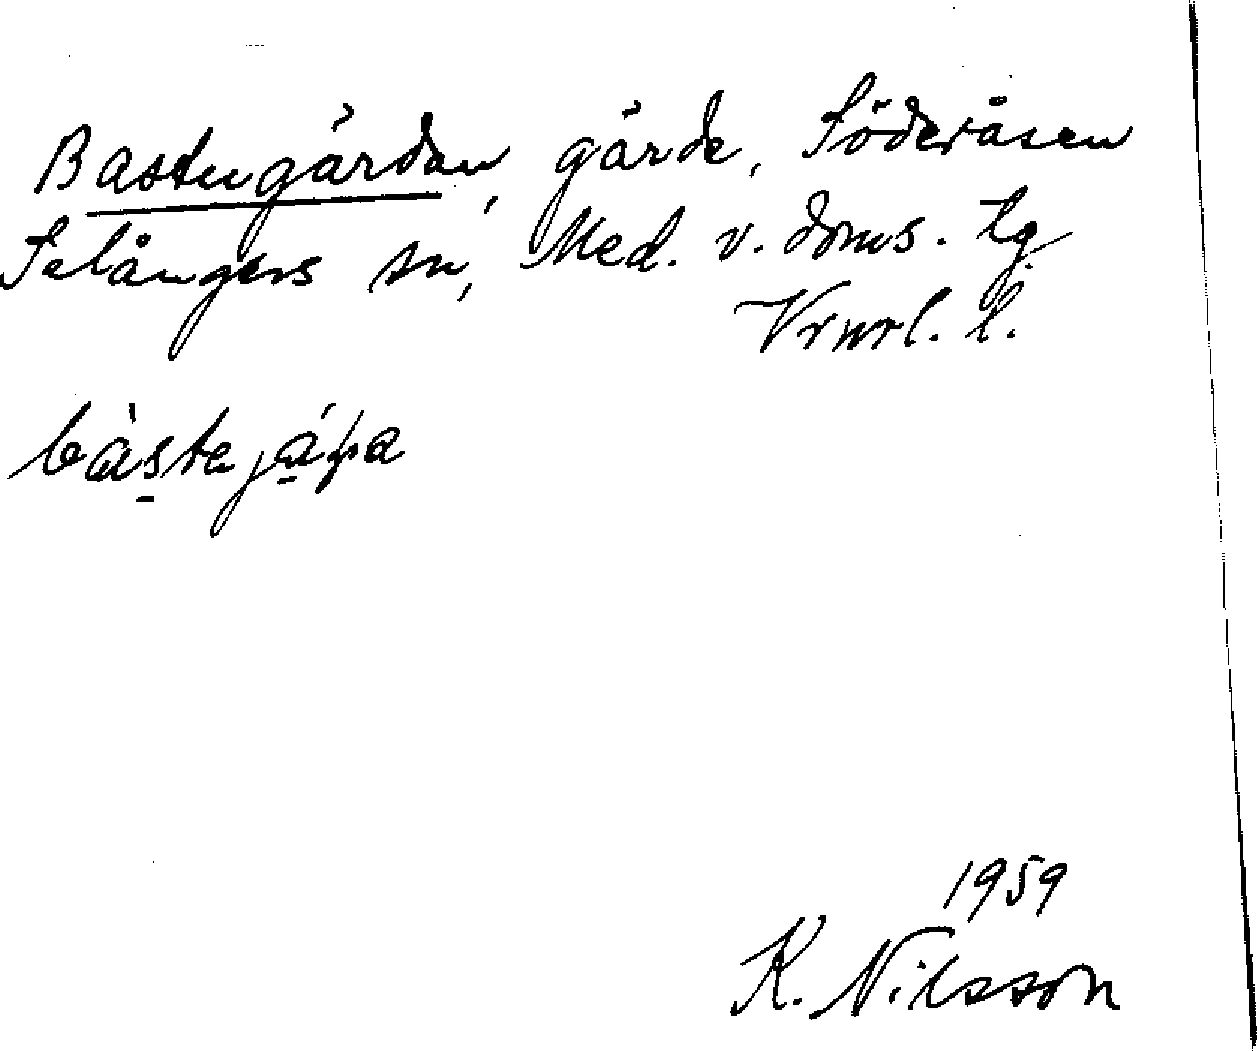 Bastugärdan, gärde, Söderåsen
Selångers sn, Med. v. doms. tg
Vrnrl. l.
1959
K. Nilsson